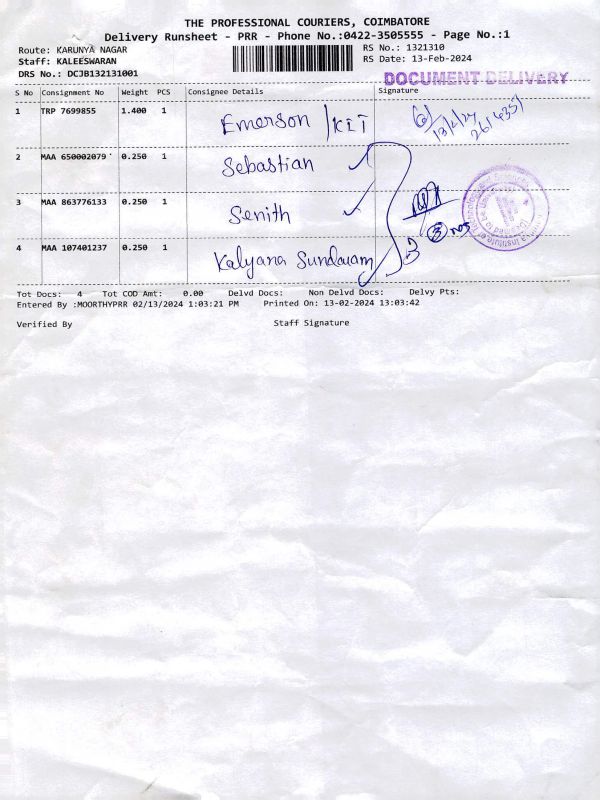 THE PROFESSIONAL COURIERS, COIMBATORE
Delivery Runsheet - PRR - Phone No.:0422-3505555 - Page No.:1
Route: KARUNYA NAGAR
RS No.: 1321310
Staff: KALEESWARAN
RS Date: 13-Feb-2024
DRS No.: DCJB132131001
DOCUMENT DELIVERY
S No Consignment No Weight PCS Consignee Details Signature
1 TRP 7699855 1.400 1 Emerson / KIT
13/2/24
2 MAA 650002079 0.250 1 Sebastian
3 MAA 863776133 0.250 1 Senith
3 nos
4 MAA 107401237 0.250 1 Kalyana Sundaram
Tot Docs: 4 Tot COD Amt: 0.00 Delvd Docs: Non Delvd Docs: Delvy Pts:
Entered By :MOORTHYPRR 02/13/2024 1:03:21 PM Printed On: 13-02-2024 13:03:42
Verified By Staff Signature